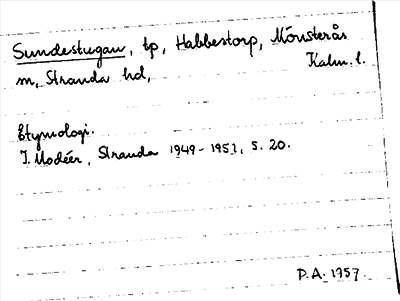 Sundestugan, tp, Habbestorp, Mönsterås
m, Stranda hd, Kalm. l.
Etymologi.
I. Modéer, Stranda 1949-1951, s. 20.
P.A. 1957.